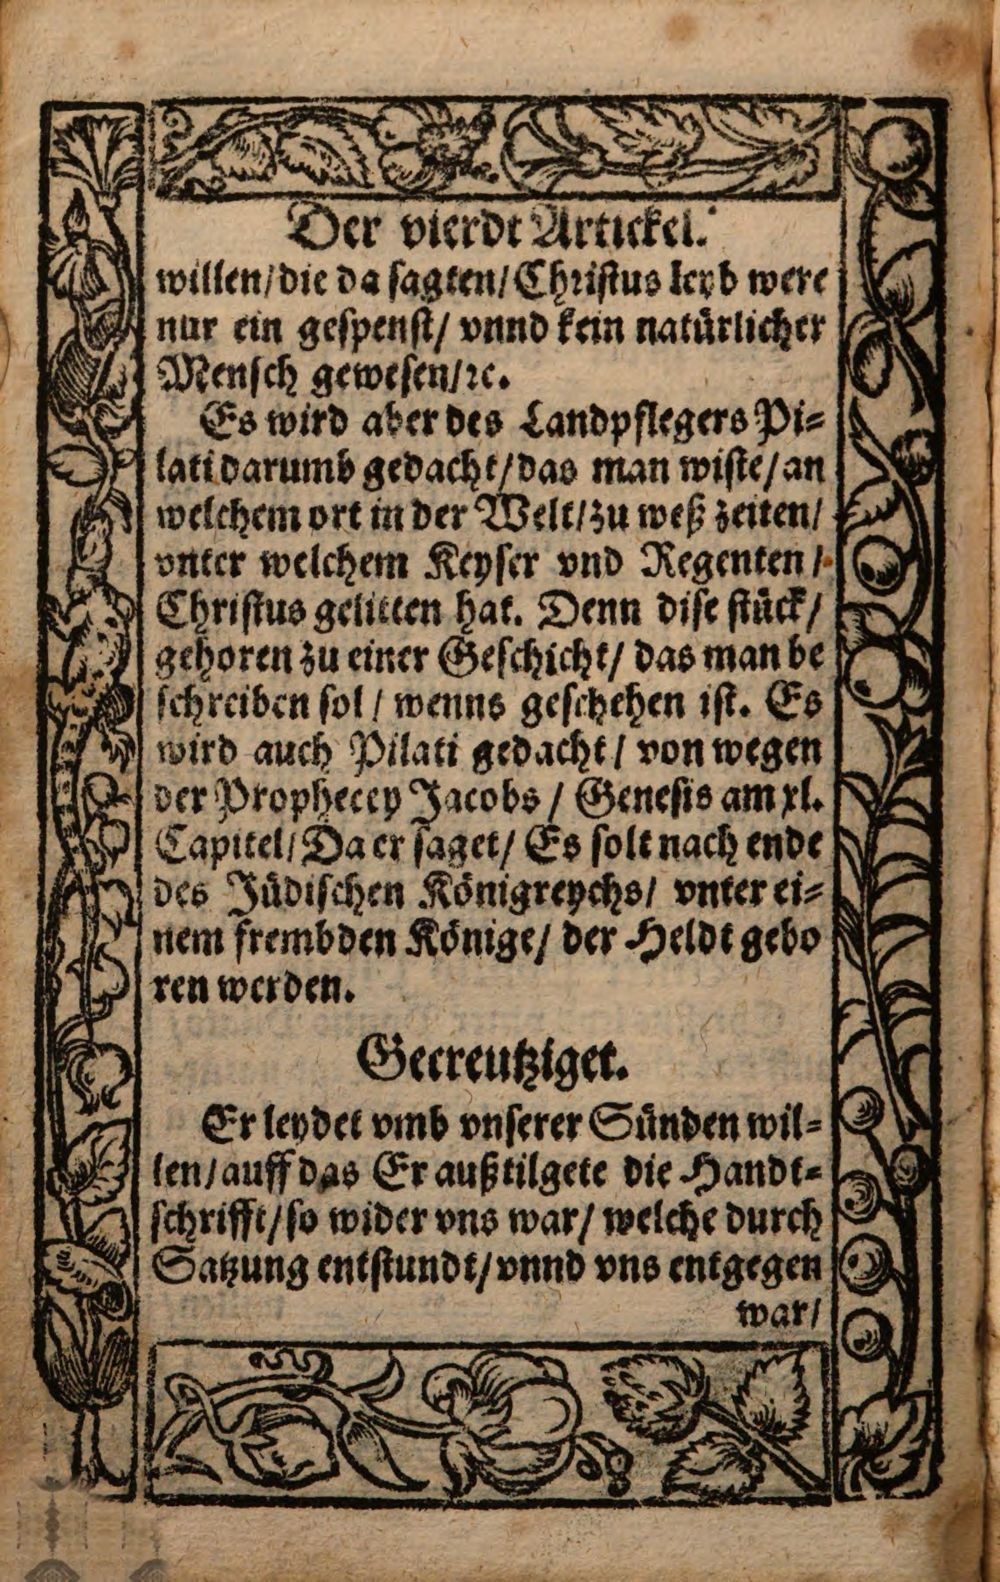 Der vierdt Artickel.
willen/ die da sagten/ Christus leyb were
nur ein gespenst/ vnnd kein natürlicher
Mensch gewesen/ ꝛc.
Es wird aber des Landpflegers Pi⸗
lati darumb gedacht/ das man wiste/ an
welchem ort in der Welt/ zu weß zeiten/
vnter welchem Keyser vnd Regenten/
Christus gelitten hat. Denn dise stück/
gehoren zu einer Geschicht/ das man be
schreiben sol/ wenns geschehen ist. Es
wird auch Pilati gedacht/ von wegen
der Prophecey Jacobs/ Genesis am xl.
Capitel/ Da er saget/ Es solt nach ende
des Jüdischen Königreychs/ vnter ei⸗
nem frembden Könige/ der Heldt gebo
ren werden.
Gecreutziget.
Er leydet vmb vnserer Sünden wil⸗
len/ auff das Er außtilgete die Handt⸗
schrifft/ so wider vns war/ welche durch
Satzung entstundt/ vnnd vns entgegen
war/